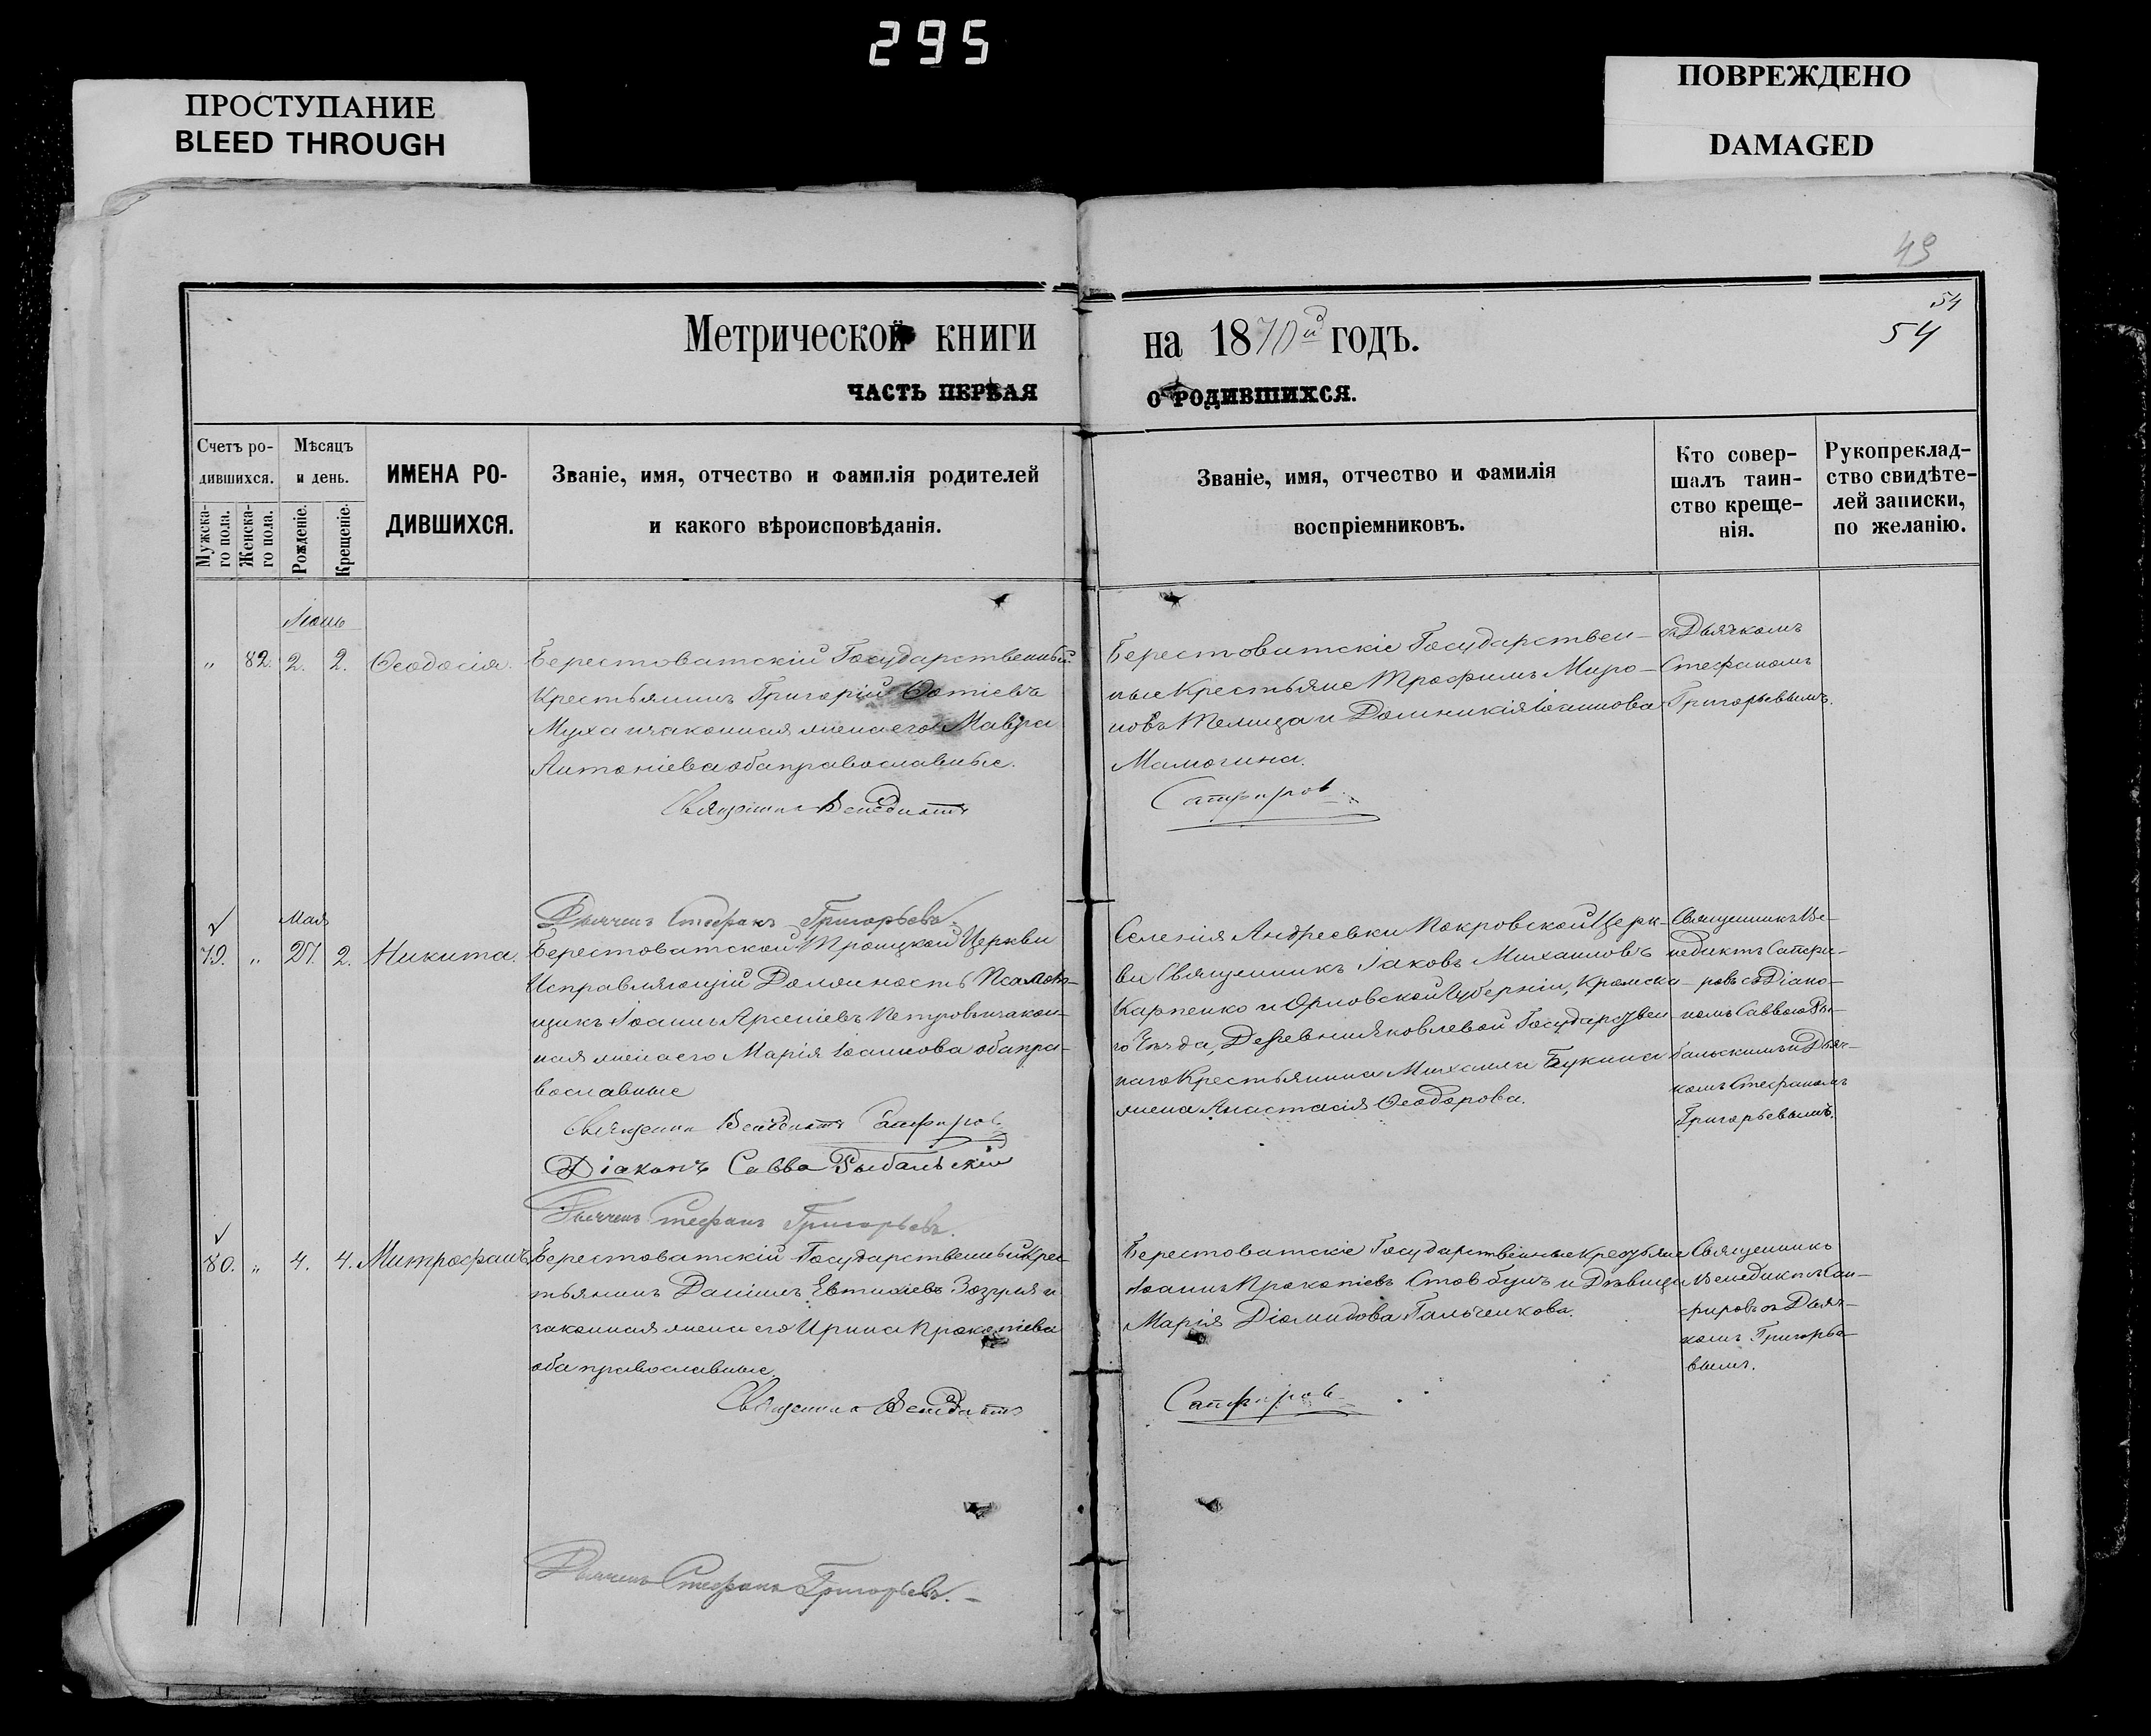 295
ПРОСТУПАНИЕ
BLEED THROUGH
ПОВРЕЖДЕНО
DAMAGED
49
54
54
Метрической книги на 1870й годъ.
ЧАСТЬ ПЕРВАЯ О РОДИВШИХСЯ.
Счетъ ро-
дившихся.
Мужска-
го пола.
Женска-
го пола.
Мѣсяцъ
и день.
Рожденіе.
Крещеніе.
ИМЕНА РО-
ДИВШИХСЯ.
Званіе, имя, отчество и фамилія родителей
и какого вѣроисповѣданія.
Званіе, имя, отчество и фамилія
воспріемниковъ.
Кто совер-
шалъ таин-
ство креще-
нія.
Рукопреклад-
ство свидѣте-
лей записки,
по желанію.
„ 82. 2. 2. Ѳеодосія.
Берестоватскій Государственный
Крестьянинъ Григорій Фотіевъ
Муха и законная жена его Мавра
Антоніева оба православные.
Священникъ Венедиктъ
Берестоватскіе Государствен-
ные Крестьяне Трофимъ Миро-
новъ Телица и Домникія Іоаннова
Мамогина.
Сапфировъ
съ Дьячкомъ
Стефаномъ
Григорьевымъ.
Дьячекъ Стефанъ Григорьевъ.
Мая
79. „ 27. 2. Никита.
Берестоватской Троицкой Церкви
Исправляющій Должность Псалом-
щикъ Іоаннъ Арсеніевъ Петровъ и закон-
ная жена его Марія Іоаннова оба пра-
вославные
Священникъ Венедиктъ Сапфировъ
Діаконъ Савва Рыбальскій
Дьячекъ Стефанъ Григорьевъ.
Селенія Андреевки Покровской Церк-
ви Священникъ Іаковъ Михаиловъ
Карпенко и Орловской Губерніи, Кромска-
го Уѣзда, Деревни Яковлевой Государствен-
наго Крестьянина Михаила Букина
жена Анастасія Ѳеодорова.
Священникъ Ве-
недиктъ Сапфи-
ровъ съ Діако-
номъ Саввою Ры-
бальскимъ и Дьяч-
комъ Стефаномъ
Григорьевымъ.
80. „ 4. 4. Митрофанъ.
Берестоватскій Государственный Крес-
тьянинъ Даніилъ Евтихіевъ Зозуля и
законная жена его Ирина Прокопіева
оба православные
Священникъ Венедиктъ
Берестоватскіе Государственные Крестьяне
Іоаннъ Прокопіевъ Стовбунъ и Дѣвица
Марія Діомидова Гальченкова.
Сапфировъ
Священникъ
Венедиктъ Сап-
фировъ съ Дьяч-
комъ Григорье-
вымъ.
Дьячекъ Стефанъ Григорьевъ.